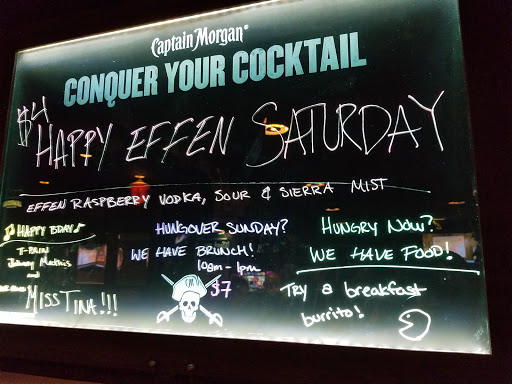 Captain Morgan
CONQUER YOUR COCKTAIL
$4 HAPPY EFFEN SATURDAY
EFFEN RASPBERRY VODKA, SOUR & SIERRA MIST
♪ HAPPY BDAY ♪
T-PAIN
Johnny Mathis
and
MISS TINA!!!
HUNGOVER SUNDAY?
WE HAVE BRUNCH!
10am - 1pm
$7
HUNGRY NOW?
WE HAVE FOOD!
TRY a breakfast
burrito!